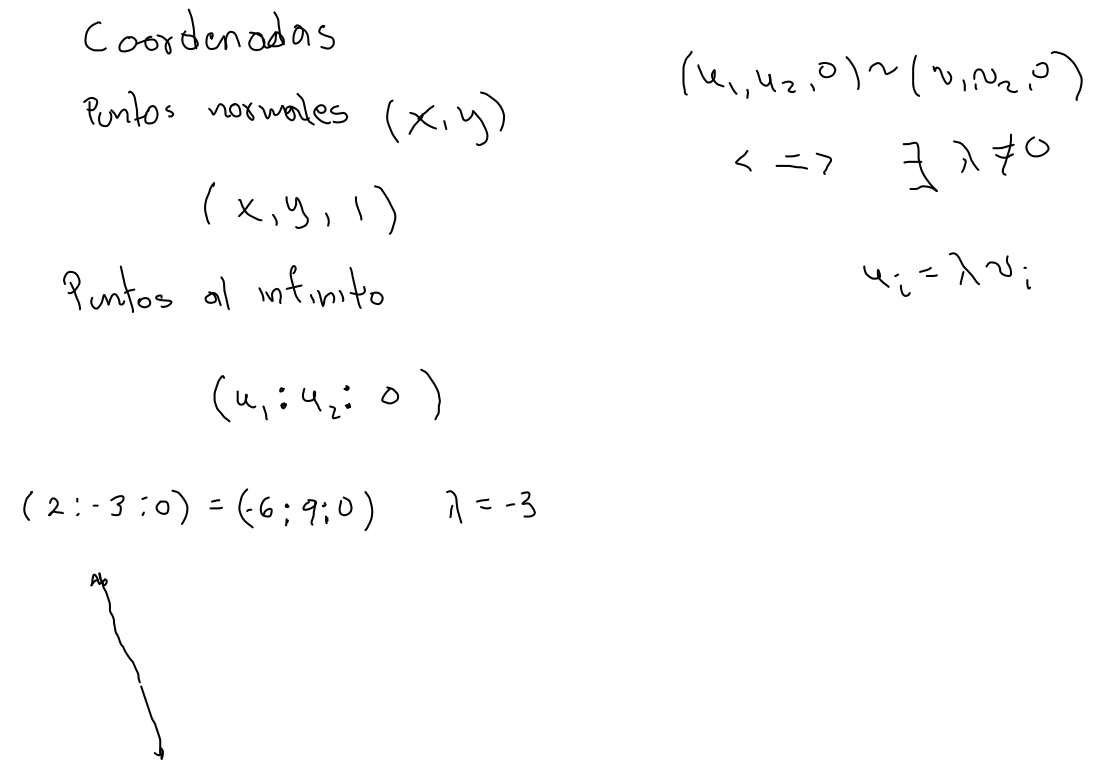 Coordenadas
Puntos normales (x, y)
(x, y, 1)
Puntos al infinito
(u₁ : u₂ : 0)
(2 : -3 : 0) = (-6 ; 9 ; 0) λ = -3
(u₁, u₂, 0) ~ (v₁, v₂, 0)
<=> ∃ λ ≠ 0
uᵢ = λ vᵢ